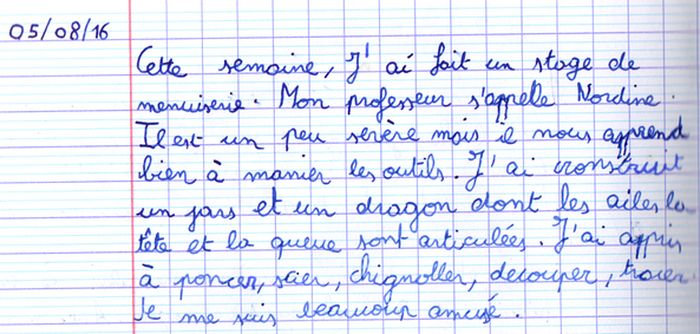 05/08/16
Cette semaine, J'ai fait un stage de
menuiserie. Mon professeur s'appelle Nordine.
Il est un peu sevère mais il nous apprend
bien à manier les outils. J'ai construit
un jars et un dragon dont les ailes la
tête et la queue sont articulées. J'ai appris
à poncer, scier, chignoller, decouper, tracer
Je me suis beaucoup amusé.